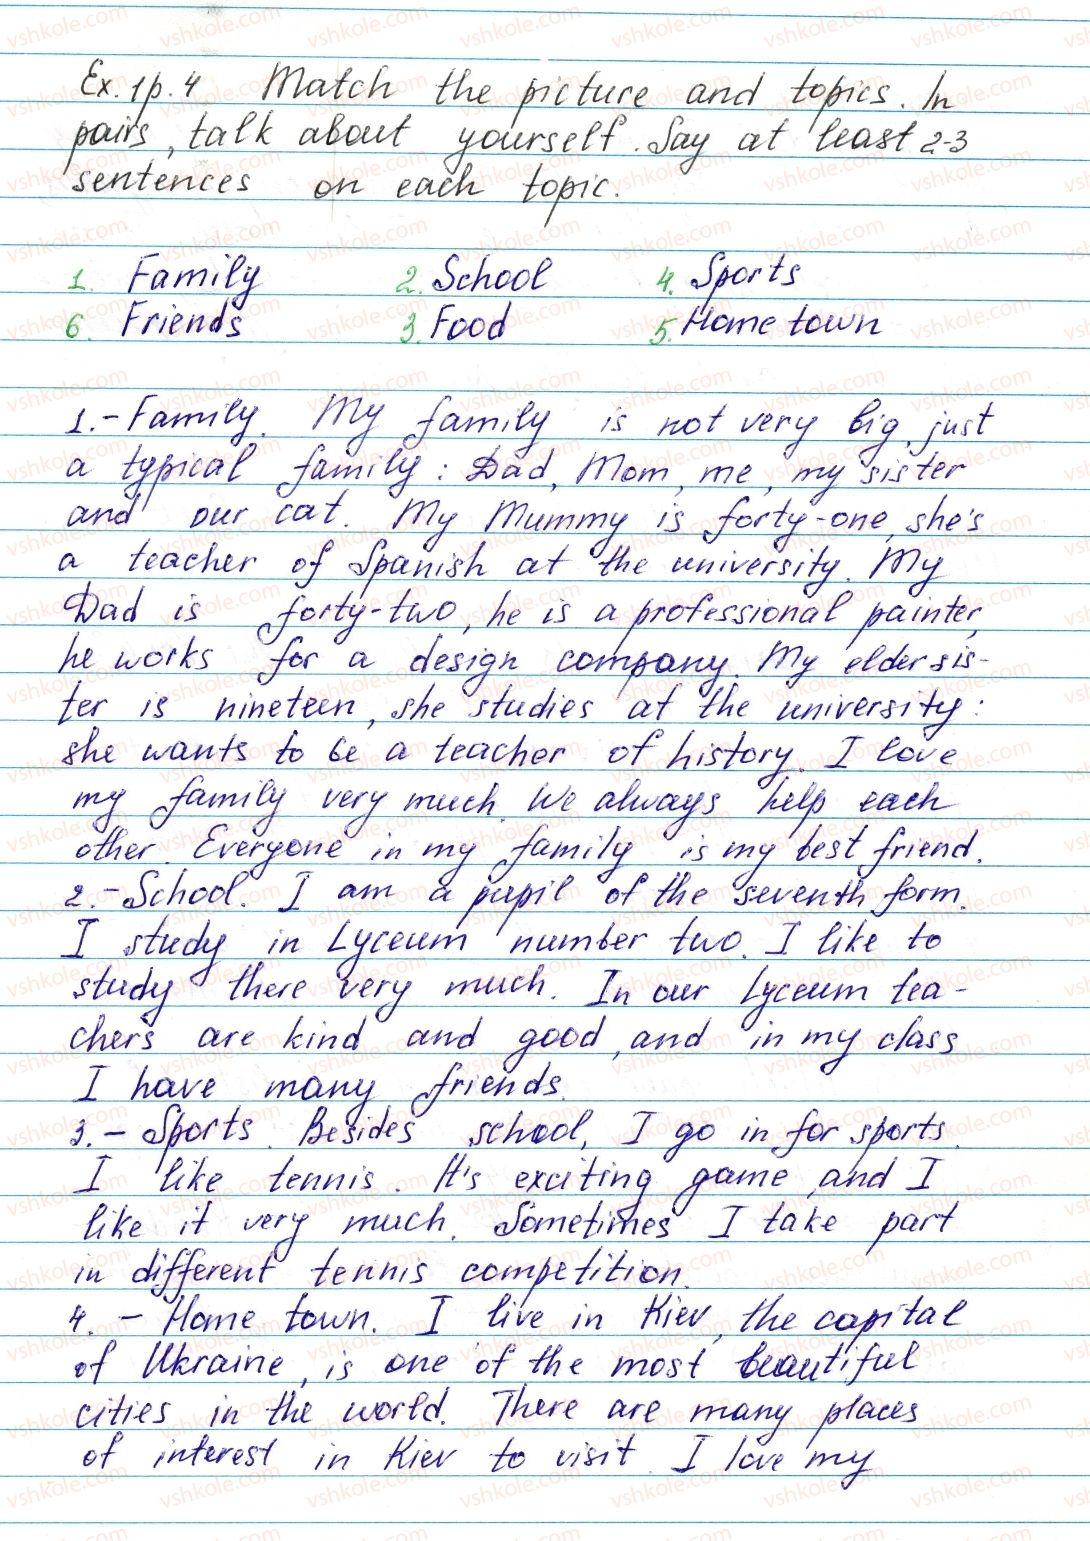 Ex. 1p. 4 Match the picture and topics. In
pairs, talk about yourself. Say at least 2-3
sentences on each topic.
1. Family 2. School 4. Sports
6. Friends 3. Food 5. Home town
1. - Family. My family is not very big, just
a typical family: Dad, Mom, me, my sister
and our cat. My Mummy is forty-one, she's
a teacher of Spanish at the university. My
Dad is forty-two, he is a professional painter,
he works for a design company. My elder sis-
ter is nineteen, she studies at the university:
she wants to be a teacher of history. I love
my family very much. We always help each
other. Everyone in my family is my best friend.
2. - School. I am a pupil of the seventh form.
I study in Lyceum number two. I like to
study there very much. In our Lyceum tea-
chers are kind and good, and in my class
I have many friends.
3. - Sports. Besides school, I go in for sports.
I like tennis. It's exciting game, and I
like it very much. Sometimes I take part
in different tennis competition.
4. - Home town. I live in Kiev, the capital
of Ukraine, is one of the most beautiful
cities in the world. There are many places
of interest in Kiev to visit. I love my
vshkole.com